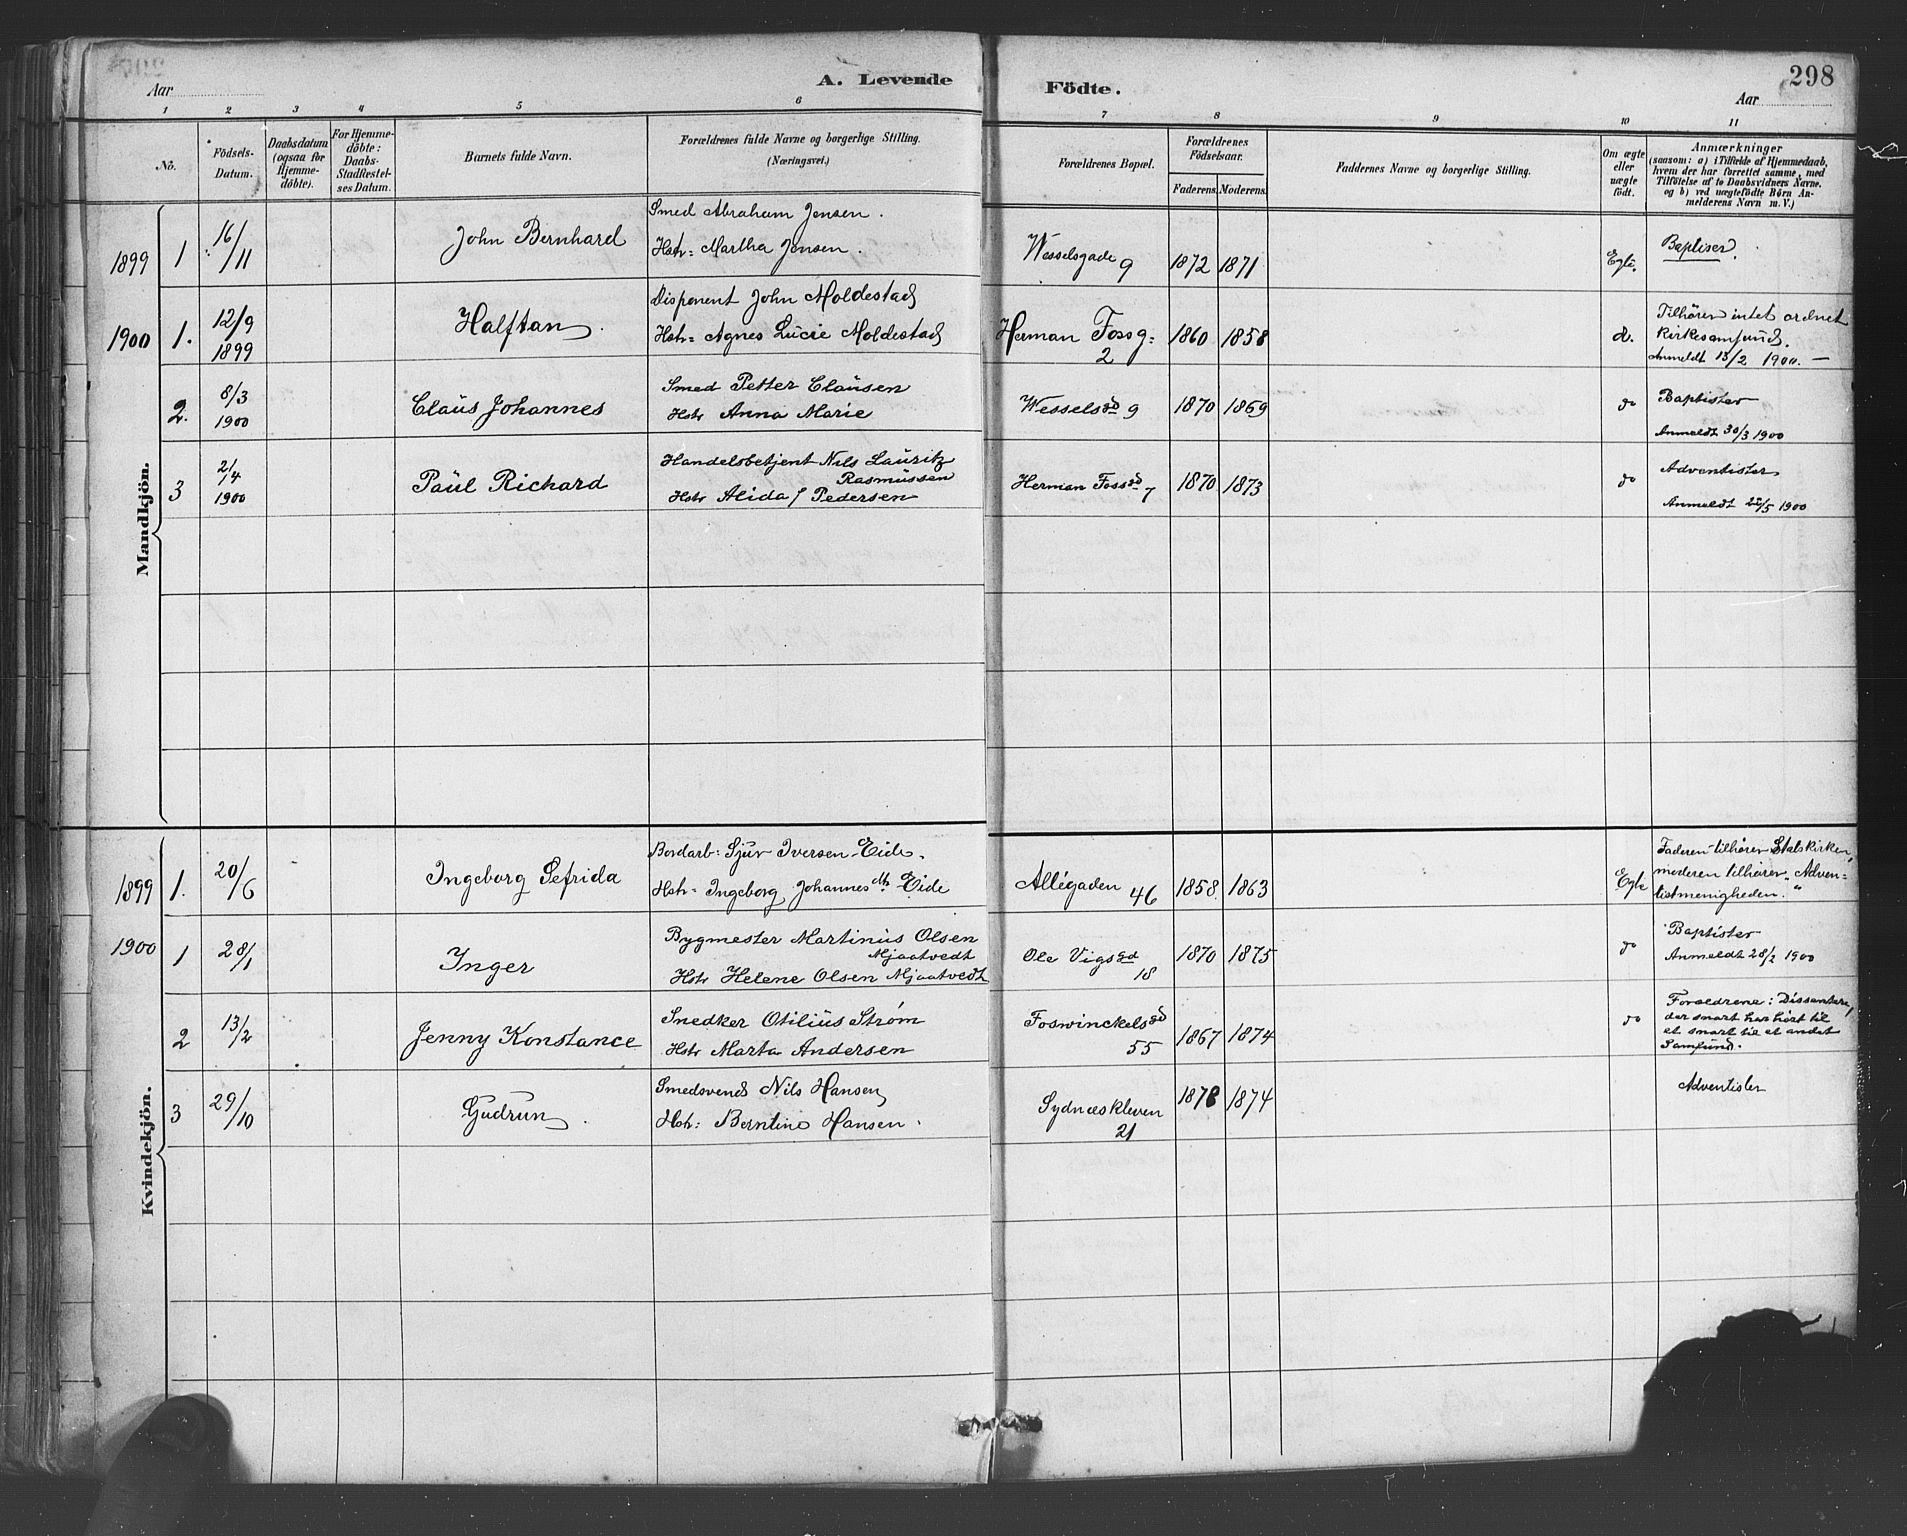 298
Aar
A. Levende
Födte.
Aar
1 2 3 4 5 6 7 8 9 10 11
No.
Födsels-Datum.
Daabsdatum (ogsaa for Hjemme-döbte).
For Hjemme-döbte: Daabs-Stadfæstel-ses Datum.
Barnets fulde Navn.
Forældrenes fulde Navne og borgerlige Stilling.
(Næringsvei.)
Forældrenes Bopæl.
Forældrenes Födselsaar.
Faderens. Moderens.
Faddernes Navne og borgerlige Stilling.
Om ægte eller uægte födt.
Anmærkninger
(saasom: a) i Tilfælde af Hjemmedaab,
hvem der har forrettet samme, med
Tilföielse af to Daabsvidners Navne.
og b) ved uægtefödte Börn An-
melderens Navn m. V.)
Mandkjön.
1899 1 16/11 John Bernhard
Smed Abraham Jensen.
Hstr: Martha Jensen.
Wesselsgade 9 1872 1871 Egte. Baptiser.
1900 1. 12/9 1899 Halftan.
Disponent John Moldestad
Hstr: Agnes Lucie Moldestad
Herman Fossg: 2 1860 1858 d.
Tilhører intet ordnet
Kirkesamfund.
Anmeldt 13/2 1900. —
2. 8/3 1900 Claus Johannes
Smed Petter Clausen
Hstr Anna Marie
Wesselsgd 9 1870 1869 do
Baptister
Anmeldt 30/3 1900
3 2/4 1900 Paul Richard
Handelsbetjent Nils Lauritz
Rasmussen
Hstr Alida f Pedersen
Herman Fossgd 7 1870 1873 do
Adventister
Anmeldt 22/5 1900
Kvindekjön.
1899 1. 20/6 Ingeborg Sefrida
Bordarb: Sjur Iversen Eide.
Hstr: Ingeborg Johannesdtr Eide
Allégaden 46 1858. 1863 Egte
Faderen tilhører Statskirken,
moderen tilhører „Adven-
tistmenigheden.“
1900 1 28/1 Inger
Bygmester Martinus Olsen
Mjaatvedt
Hstr Helene Olsen Mjaatvedt
Ole Vigsgd 18 1870 1875 do
Baptister
Anmeldt 28/2 1900
2 13/2 Jenny Konstance
Snedker Otilius Strøm
Hstr Marta Andersen
Foswinckelsgd 55 1867 1874 do
Forældrene: Dissentere,
der snart har hørt til
et snart til et andet
Samfund.
3 29/10 Gudrun.
Smedsvend Nils Hansen
Hstr: Berntine Hansen.
Sydnæskleven 21 1878 1874
Adventister